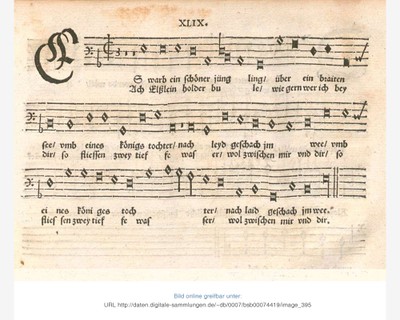 XLIX.
ES warb ein schöner jüng ling/ über ein braiten
Ach Elßlein holder bu le/ wie gern wer ich bey
see/ vmb eines königs tochter/ nach leyd geschach jm wee/ vmb
dir/ so fliessen zwey tief fe was ser/ wol zwischen mir vnd dir/ so
ei nes köni ges toch ter/ nach laid geschach jm wee.
flies sen zwey tief fe was ser/ wol zwischen mir vnd dir.
Bild online greifbar unter:
URL http://daten.digitale-sammlungen.de/~db/0007/bsb00074419/image_395